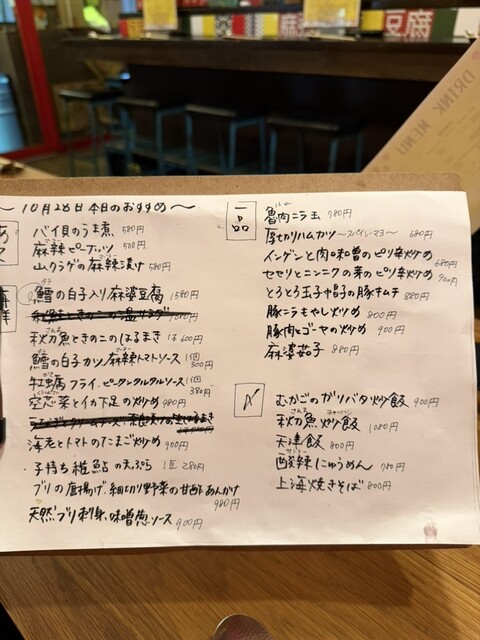 麻
豆腐
DRINK MENU
〜10月28日本日のおすすめ〜
バイ貝のうま煮 580円
麻辣ピーナッツ 500円
山クラゲの麻辣漬け 580円
鱈の白子入り麻婆豆腐 1580円
秋刀魚ときのこのはるまき 1本 600円
鱈の白子カツ 麻辣トマトソース 1個 300円
牡蠣フライ ピータンタルタルソース 1個 380円
空芯菜とイカ下足の炒め 980円
海老とトマトのたまご炒め 900円
子持ち稚鮎の天ぷら 1匹 280円
ブリの唐揚げ、細切り野菜の甘酢あんかけ 980円
天然ブリ刺身、味噌葱ソース 900円
一品
魯肉ニラ玉 780円
厚切りハムカツ 〜スパイシーマヨ〜 680円
インゲンと肉味噌のピリ辛炒め 680円
セセリとニンニクの芽のピリ辛炒め 900円
とろとろ玉子帽子の豚キムチ 880円
豚ニラもやし炒め 800円
豚肉とゴーヤの炒め 900円
麻婆茄子 880円
〆
むかごのガリバタ炒飯 980円
秋刀魚炒飯 1080円
天津飯 800円
酸辣にゅうめん 780円
上海焼きそば 800円